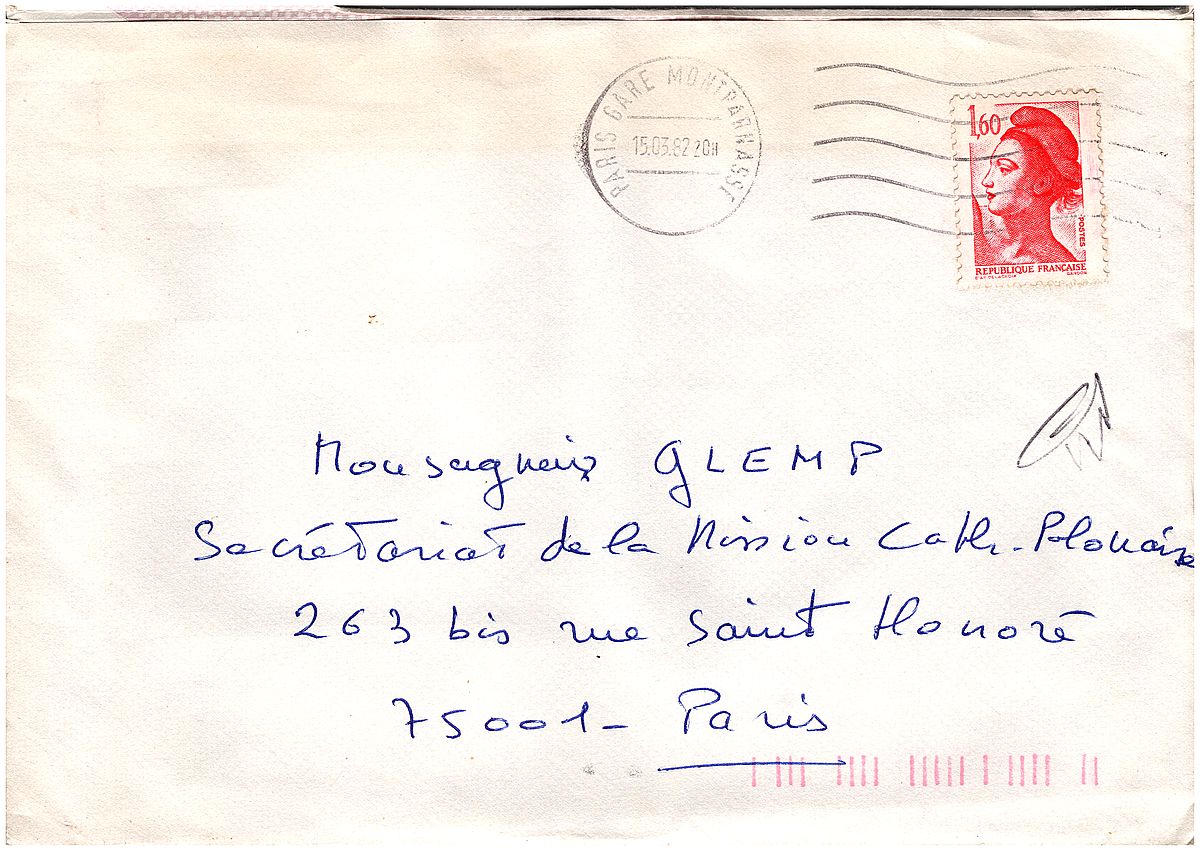 PARIS GARE MONTPARNASSE
15.03.82 20H
1,60
POSTES
REPUBLIQUE FRANÇAISE
D'AP. DELACROIX GANDON
Monseigneur GLEMP
Secrétariat de la Mission Cath. Plonaise
263 bis rue Saint Honoré
75001 - Paris